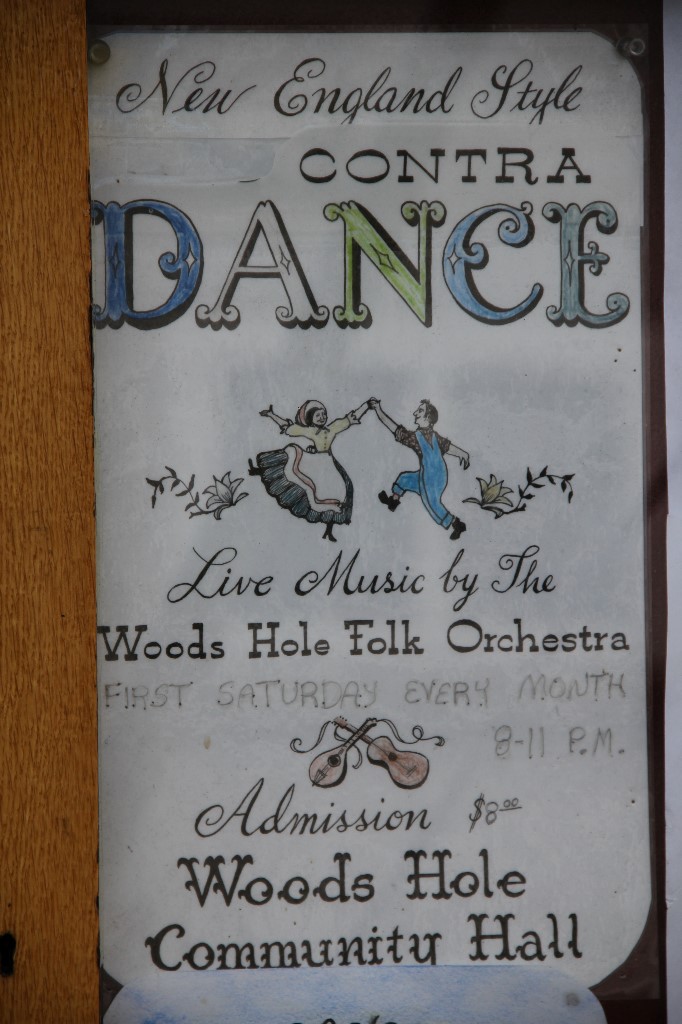 New England Style
CONTRA
DANCE
Live Music by The
Woods Hole Folk Orchestra
FIRST SATURDAY EVERY MONTH
8-11 P.M.
Admission $8.00
Woods Hole
Community Hall